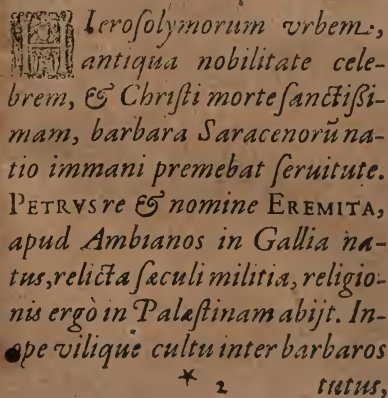 HIeroſolymorum vrbem,
antiqua nobilitate cele-
brem, & Chriſti morte ſanctißi-
mam, barbara Saracenorū na-
tio immani premebat ſeruitute.
PETRVS re & nomine EREMITA,
apud Ambianos in Gallia na-
tus, relicta ſæculi militia, religio-
nis ergò in Palæſtinam abijt. In-
ope vilique cultu inter barbaros
* 2 tutus,